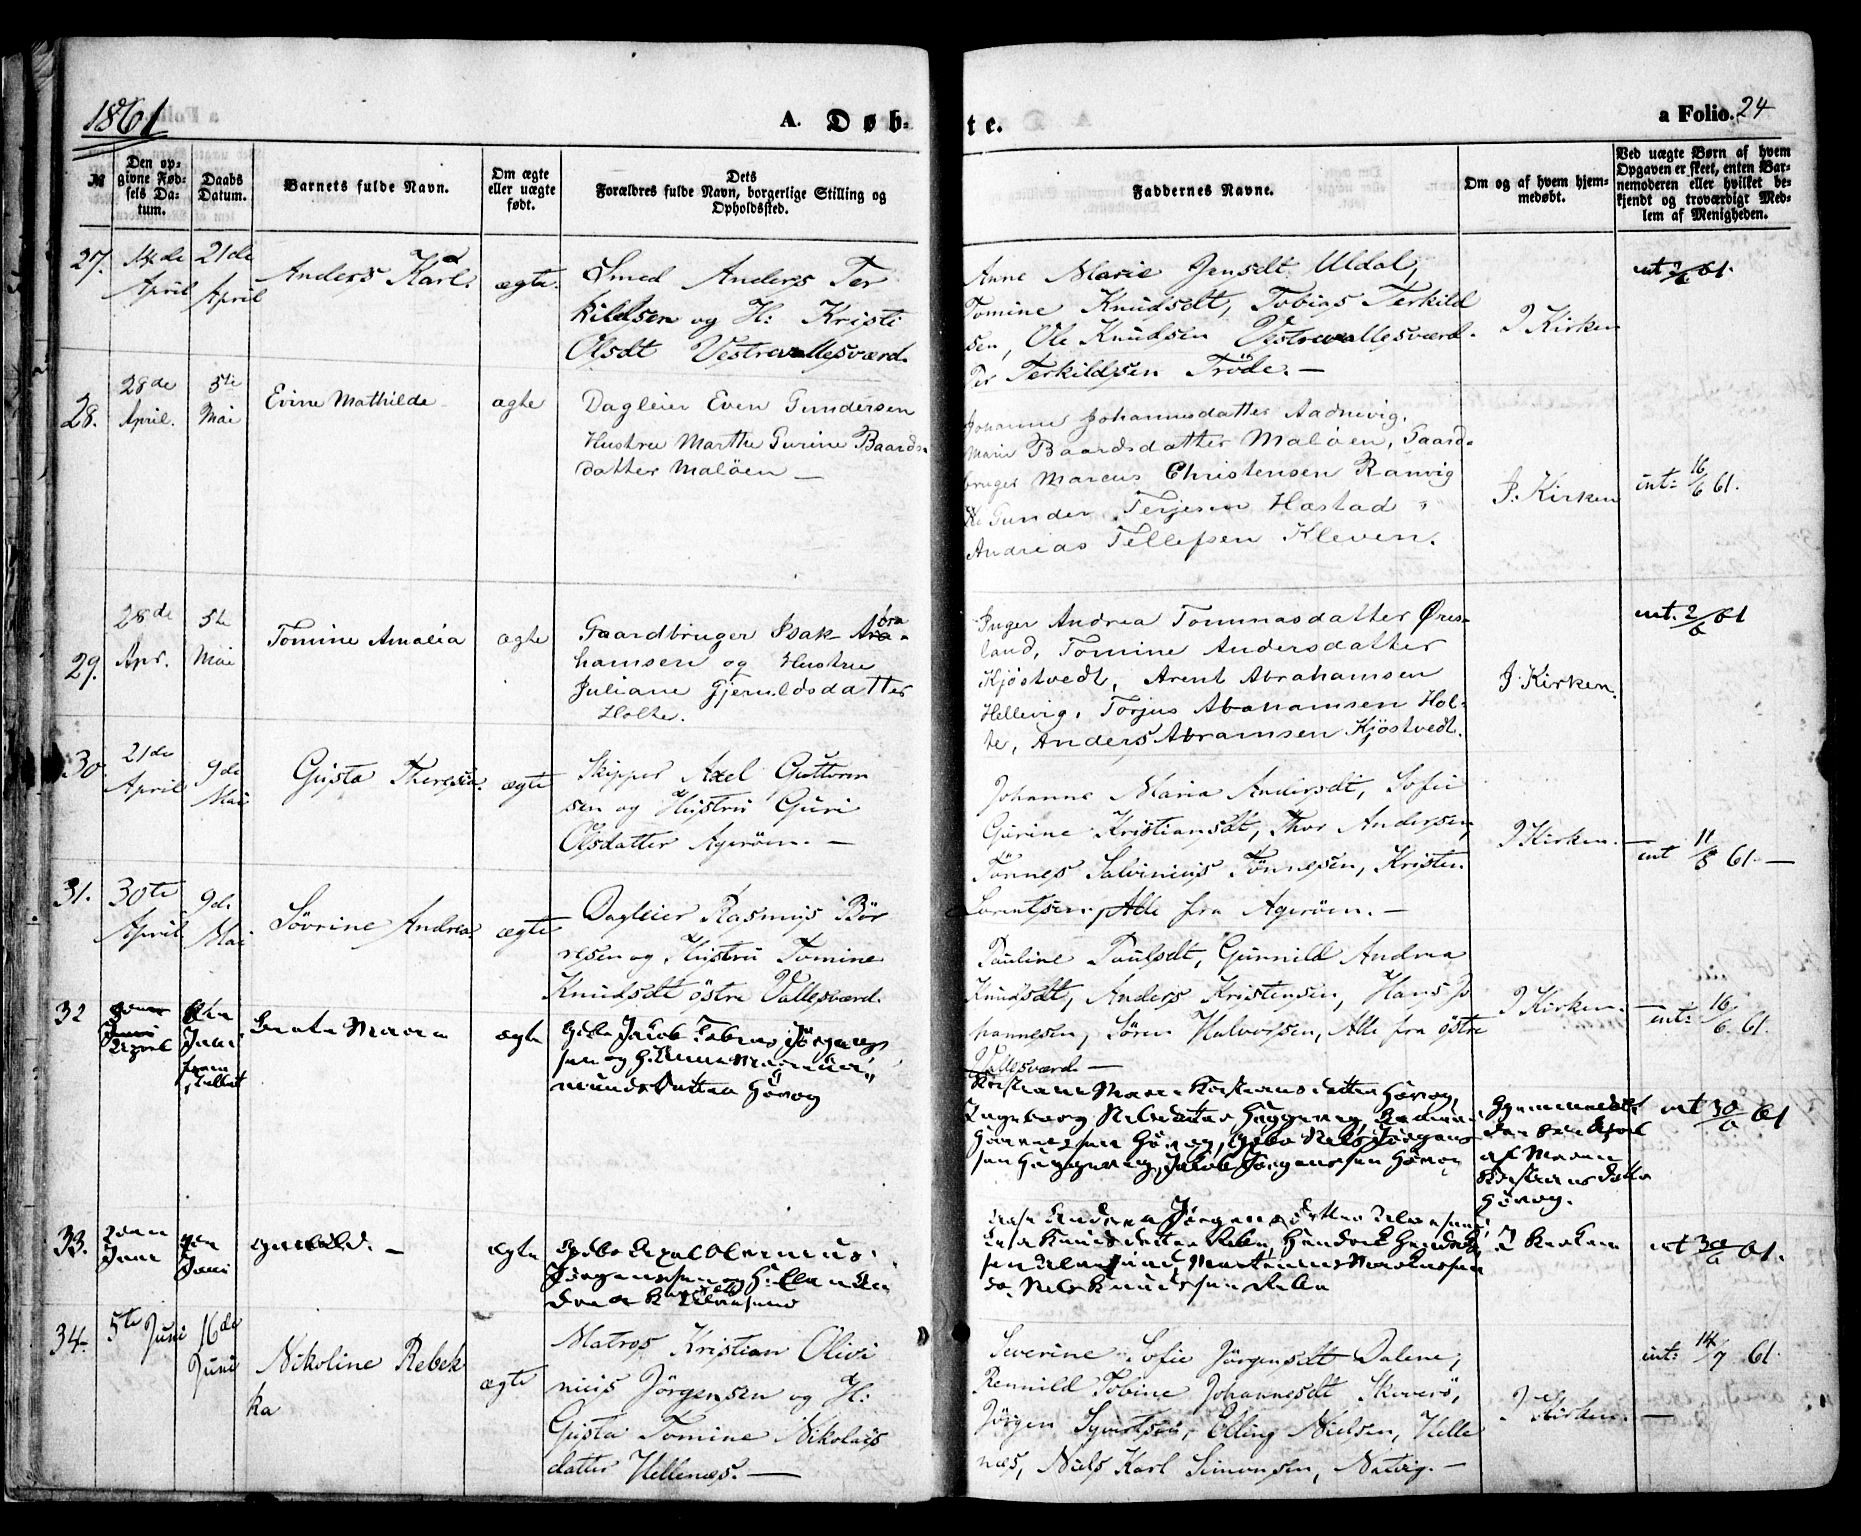 1861
A. Døb-
te.
a Folio. 24
№
Den op-
givne Fød-
sels Da-
tum.
Daabs
Datum.
Barnets fulde Navn.
Om ægte
eller uægte
født.
Dets
Forældres fulde Navn, borgerlige Stilling og
Opholdssted.
Faddernes Navne.
Om og af hvem hjem-
medøbt.
Ved uægte Børn af hvem
Opgaven er skeet, enten Bar-
nemoderen eller hvilket be-
kjendt og troværdigt Med-
lem af Menigheden.
27.
14de
April
21de
April
Anders Karl.
ægte.
Smed Anders Ter
kildsen og H: Kristi
Olsdt Vestrevallesværd.
Anne Marie Jensdt. Uldal,
Tomine Knudsdt, Tobias Terkild
sen, Ole Knudsen Vestrevallesværd.
Ter Terkildsen Tröde. —
I Kirken
int 2/6 61.
28.
28de
April.
5te
Mai
Evine Mathilde
ægte
Dagleier Even Gundersen
Hustru Marthe Gurine Baards-
datter Maløen —
Johanne Johannesdatter Aadnevig.
Marie Baardsdatter Maløen, Gaard-
bruger Marcus Christensen Ranvig
Gunder Terjesen Hæstad "
Andreas Tellefsen Kleven.
I: Kirken
int: 16/6 61.
29.
28de
Apr.
5te
Mai
Tomine Amalia
ægte
Gaardbruger Isak Abra-
hamsen og Hustru
Juliane Gjeruldsdatter
Holte.
Inger Andrea Tommasdatter Øres-
land, Tomine Andersdatter
Kjøstvedt, Arent Abrahamsen
Hellevig, Torjus Abahamsen Hol-
te, Anders Abramsen Kjøstvedt.
I. Kirken.
int. 2/6 61
30.
21de
April
9de
Mai
Gusta Theresia.
ægte
Skipper Axel Guttorm
sen og Hustru Guri
Olsdatter Agerøen. —
Johanne Maria Andersdt, Sofie
Gurine Kristiansdt, Thor Andersen,
Tönnes Salvinius Tönnesen, Kristen
Lorentsen. Alle fra Agerøen. —
I Kirken. —
int 11/8 61. —
31.
30te
April
9de
Mai
Sövrine Andrea.
ægte
Dagleier Rasmus Bör
resen og Hustru Tomine
Knudsdt östre Vallesværd.
Pauline Paulsdt, Gunnild Andrea
Knudsdt, Anders Kristensen, Hans Jo
hannesen, Sören Halvorsen, Alle fra östre
Vallesværd —
I Kirken. —
int: 16/6 61.
32
April
Juni
Berte Maren
ægte
Jacob Tobias Jörgens
sen og H.
mundsdatter Hövog
Kristiane Maren Kristiansdatter Hövog,
Ingeborg Nilsdatter Hæggevig,
Hövog, Nils Jörgens
sen Hæggevig, Jakob Jörgenssen Hövog
Hjemmedöbt
den April
af Maren
Kristiansdatter
Hövog.
int 30/6 61
33.
Juni
Juni
ægte
Axel
Jörgenssen og H:
Andrea Jörgensdatter
Knudsdatter
Nils Knudssen
I Kirken
int 30/6 61.
34.
5te Juni
16de
Juni
Nikoline Rebek
ka
ægte
Matros Kristian Olivi
nius Jörgensen og H:
Gusta Tomine Nikolais
datter Hellenæs. —
Severine Sofie Jörgensdt Dalene,
Rennild Tobine Johannesdt Skoverö,
Jörgen Syvertsen, Elling Nielsen, Helle
næs, Niels Karl Simonsen, Natvig. —
I Kirken. —
int: 14/7 61.